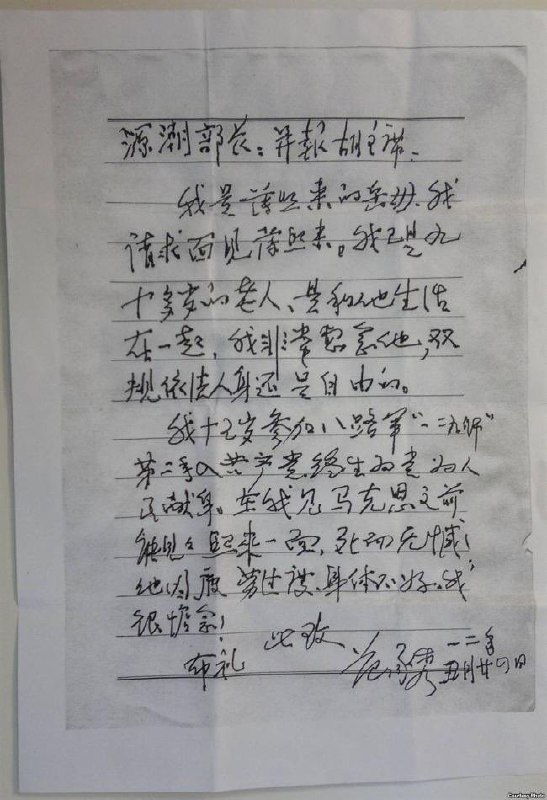 源潮部长：并报胡主席、
我是薄熙来的岳母、我
请求面见薄熙来。我已是九
十多岁的老人、是和他生活
在一起，我非常想念他，双
规依法人身还是自由的。
我十五岁参加八路军“一二九师”
第二年入共产党终生为党为人
民献身。在我见马克思之前
能见见熙来一面，死而无憾！
他因疲劳过度、身体不好、我
很惦念！
此致
布礼
范承秀
一二年
五月廿四日
Courtesy Photo